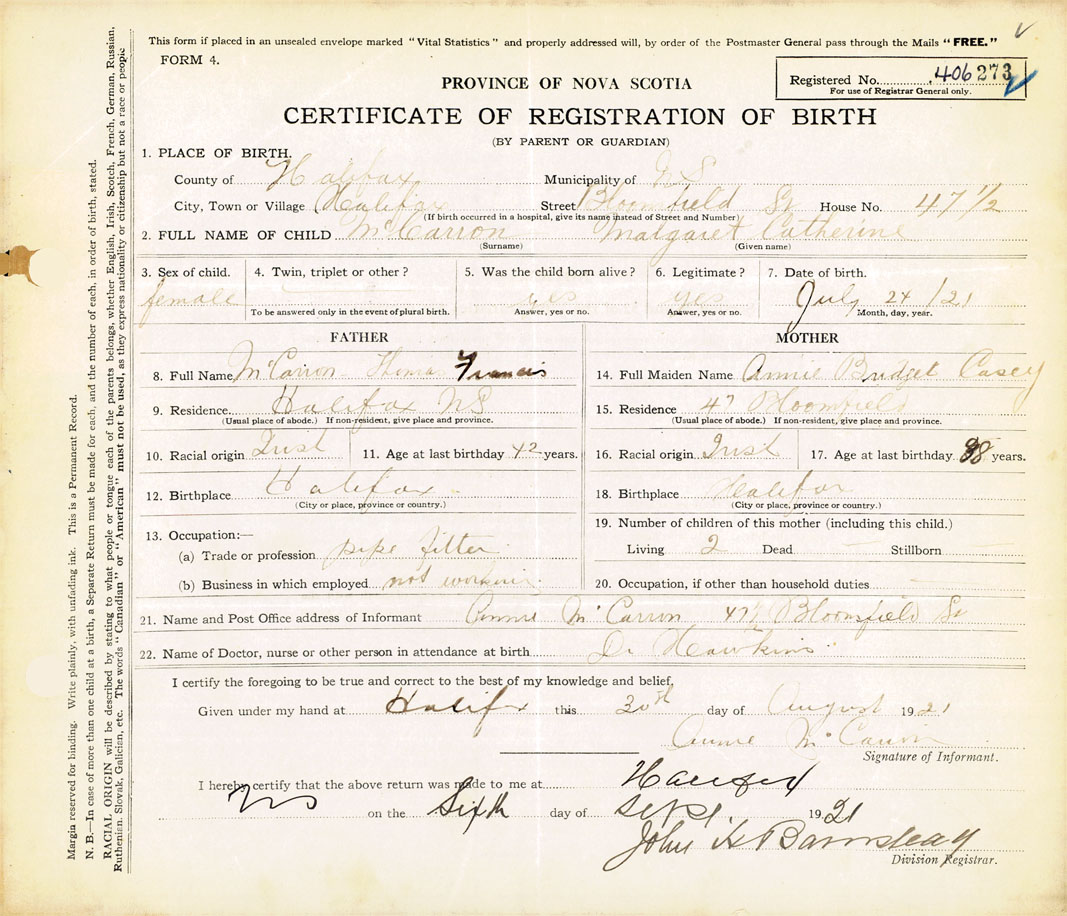 This form if placed in an unsealed envelope marked "Vital Statistics" and properly addressed will, by order of the Postmaster General pass through the Mails "FREE."
FORM 4.
Registered No. 406273
For use of Registrar General only.
PROVINCE OF NOVA SCOTIA
CERTIFICATE OF REGISTRATION OF BIRTH
(BY PARENT OR GUARDIAN)
1. PLACE OF BIRTH.
County of Halifax Municipality of N S
City, Town or Village Halifax Street Bloomfield St House No. 47 1/2
(If birth occurred in a hospital, give its name instead of Street and Number)
2. FULL NAME OF CHILD McCarron Malgaret Catherine
(Surname) (Given name)
3. Sex of child. 4. Twin, triplet or other? 5. Was the child born alive? 6. Legitimate? 7. Date of birth.
female yes yes July 24 /21
To be answered only in the event of plural birth. Answer, yes or no. Answer, yes or no. Month, day, year.
FATHER MOTHER
8. Full Name McCarron Thomas Francis 14. Full Maiden Name Annie Bridget Casey
9. Residence Halifax NS 15. Residence 47 Bloomfield
(Usual place of abode.) If non-resident, give place and province. (Usual place of abode.) If non-resident, give place and province.
10. Racial origin Irish 11. Age at last birthday 42 years. 16. Racial origin Irish 17. Age at last birthday 38 years.
12. Birthplace Halifax 18. Birthplace Halifax
(City or place, province or country.) (City or place, province or country.)
13. Occupation:— 19. Number of children of this mother (including this child.)
(a) Trade or profession pipe fitter Living 2 Dead — Stillborn —
(b) Business in which employed not workin 20. Occupation, if other than household duties
21. Name and Post Office address of Informant Annie McCarron 47½ Bloomfield St
22. Name of Doctor, nurse or other person in attendance at birth Dr Hawkins
I certify the foregoing to be true and correct to the best of my knowledge and belief,
Given under my hand at Halifax this 30th day of August 1921
Annie McCarron
Signature of Informant.
I hereby certify that the above return was made to me at Halifax
NS on the Sixth day of Sept 1921
John H Barnstead
Division Registrar.
Margin reserved for binding. Write plainly, with unfading ink. This is a Permanent Record.
N. B.—In case of more than one child at a birth, a Separate Return must be made for each, and the number of each, in order of birth, stated.
RACIAL ORIGIN will be described by stating to what people or tongue each of the parents belongs, whether English, Irish, Scotch, French, German, Russian,
Ruthenian, Slovak, Galician, etc. The words "Canadian" or "American" must not be used, as they express nationality or citizenship but not a race or people